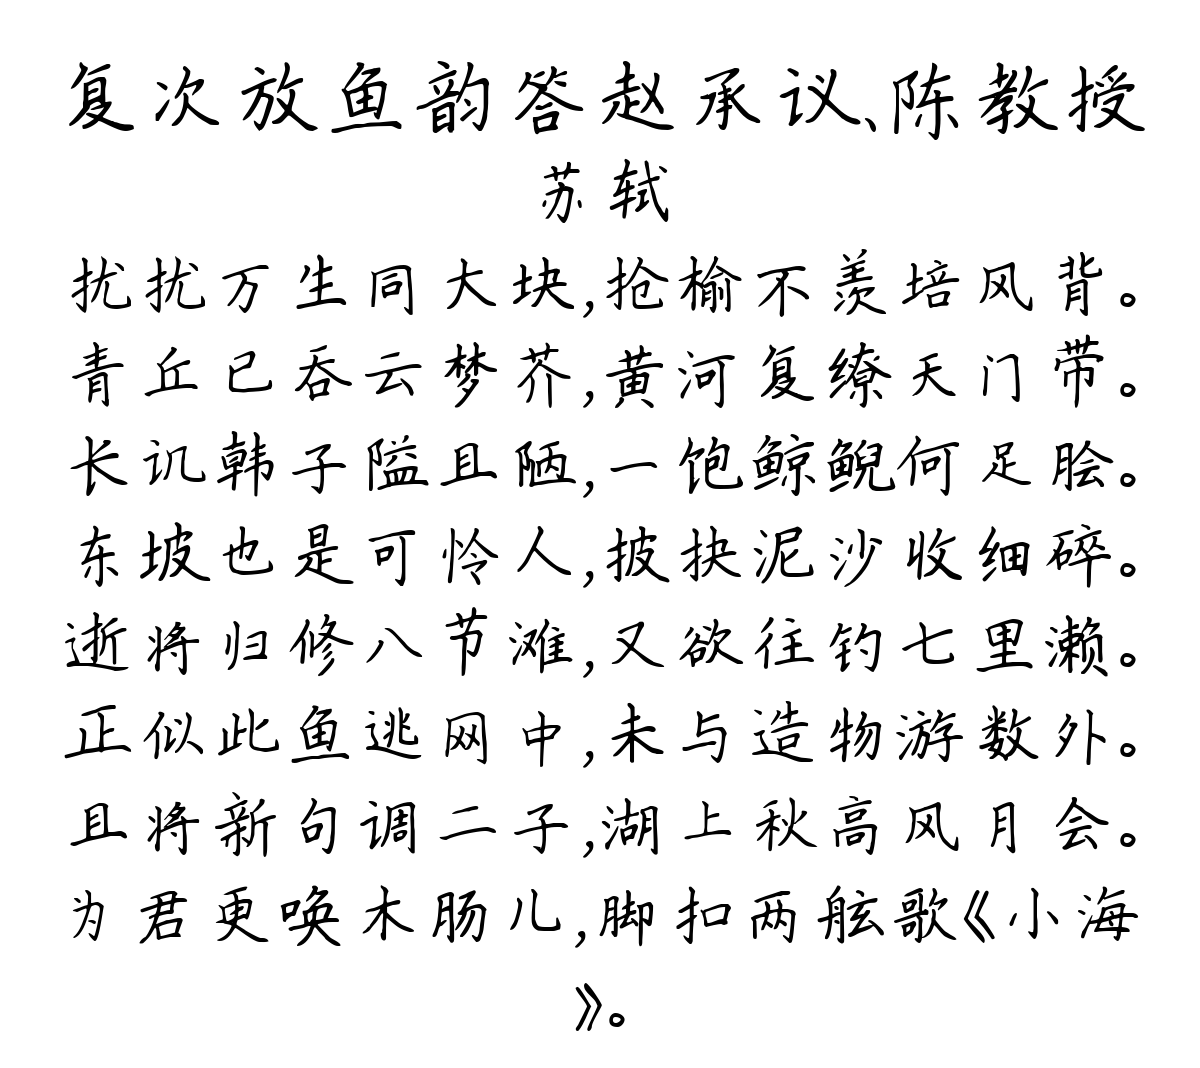 复次放鱼韵答赵承议、陈教授
苏轼
扰扰万生同大块,抢榆不羡培风背。
青丘已吞云梦芥,黄河复缭天门带。
长讥韩子隘且陋,一饱鲸鲵何足脍。
东坡也是可怜人,披抉泥沙收细碎。
逝将归修八节滩,又欲往钓七里濑。
正似此鱼逃网中,未与造物游数外。
且将新句调二子,湖上秋高风月会。
为君更唤木肠儿,脚扣两舷歌《小海
》。